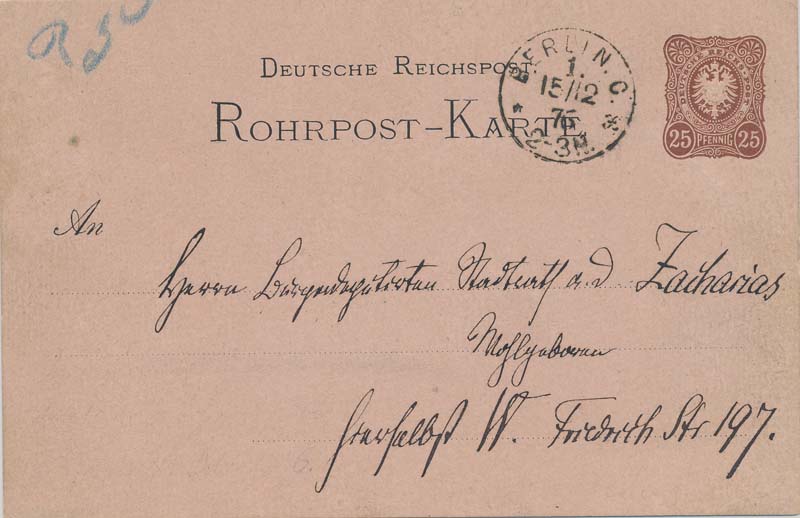 DEUTSCHE REICHSPOST.
ROHRPOST-KARTE.
BERLIN. C.
1.
15/12
76
2-3N.
DEUTSCHE REICHS-POST
25 PFENNIG 25
An
Herrn Bürgerdeputirten Stadtrath a. d. Zacharias
Wohlgeboren
hierselbst W. Friedrich Str 197.